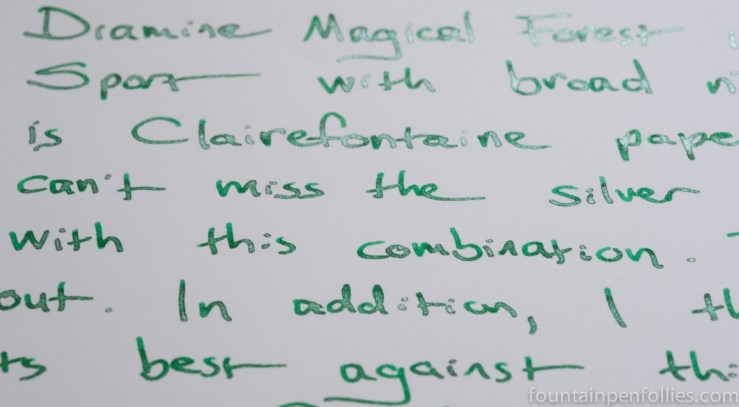 Diamine Magical Forest
Sport with broad
is Clairefontaine pape
can't miss the silver
with this combination.
out. In addition, I th
ts best against thi
fountainpenfollies.com